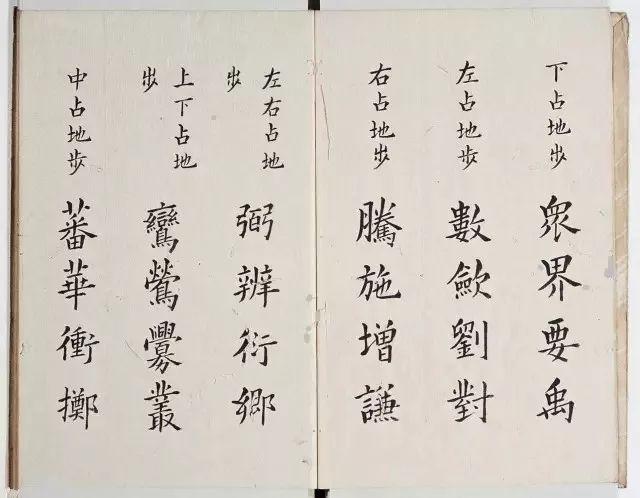 下占地步 眾界要禹
左占地步 數歛劉對
右占地步 騰施增謙
左右占地步 弼辨衍鄉
上下占地步 鸞鶯釁叢
中占地步 蕃華衝擲